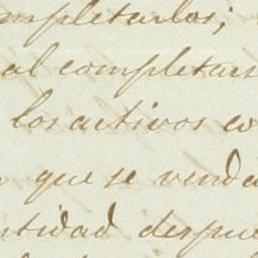 mpletarlos;
al completars
los activos co
que se venda
ntidad despue